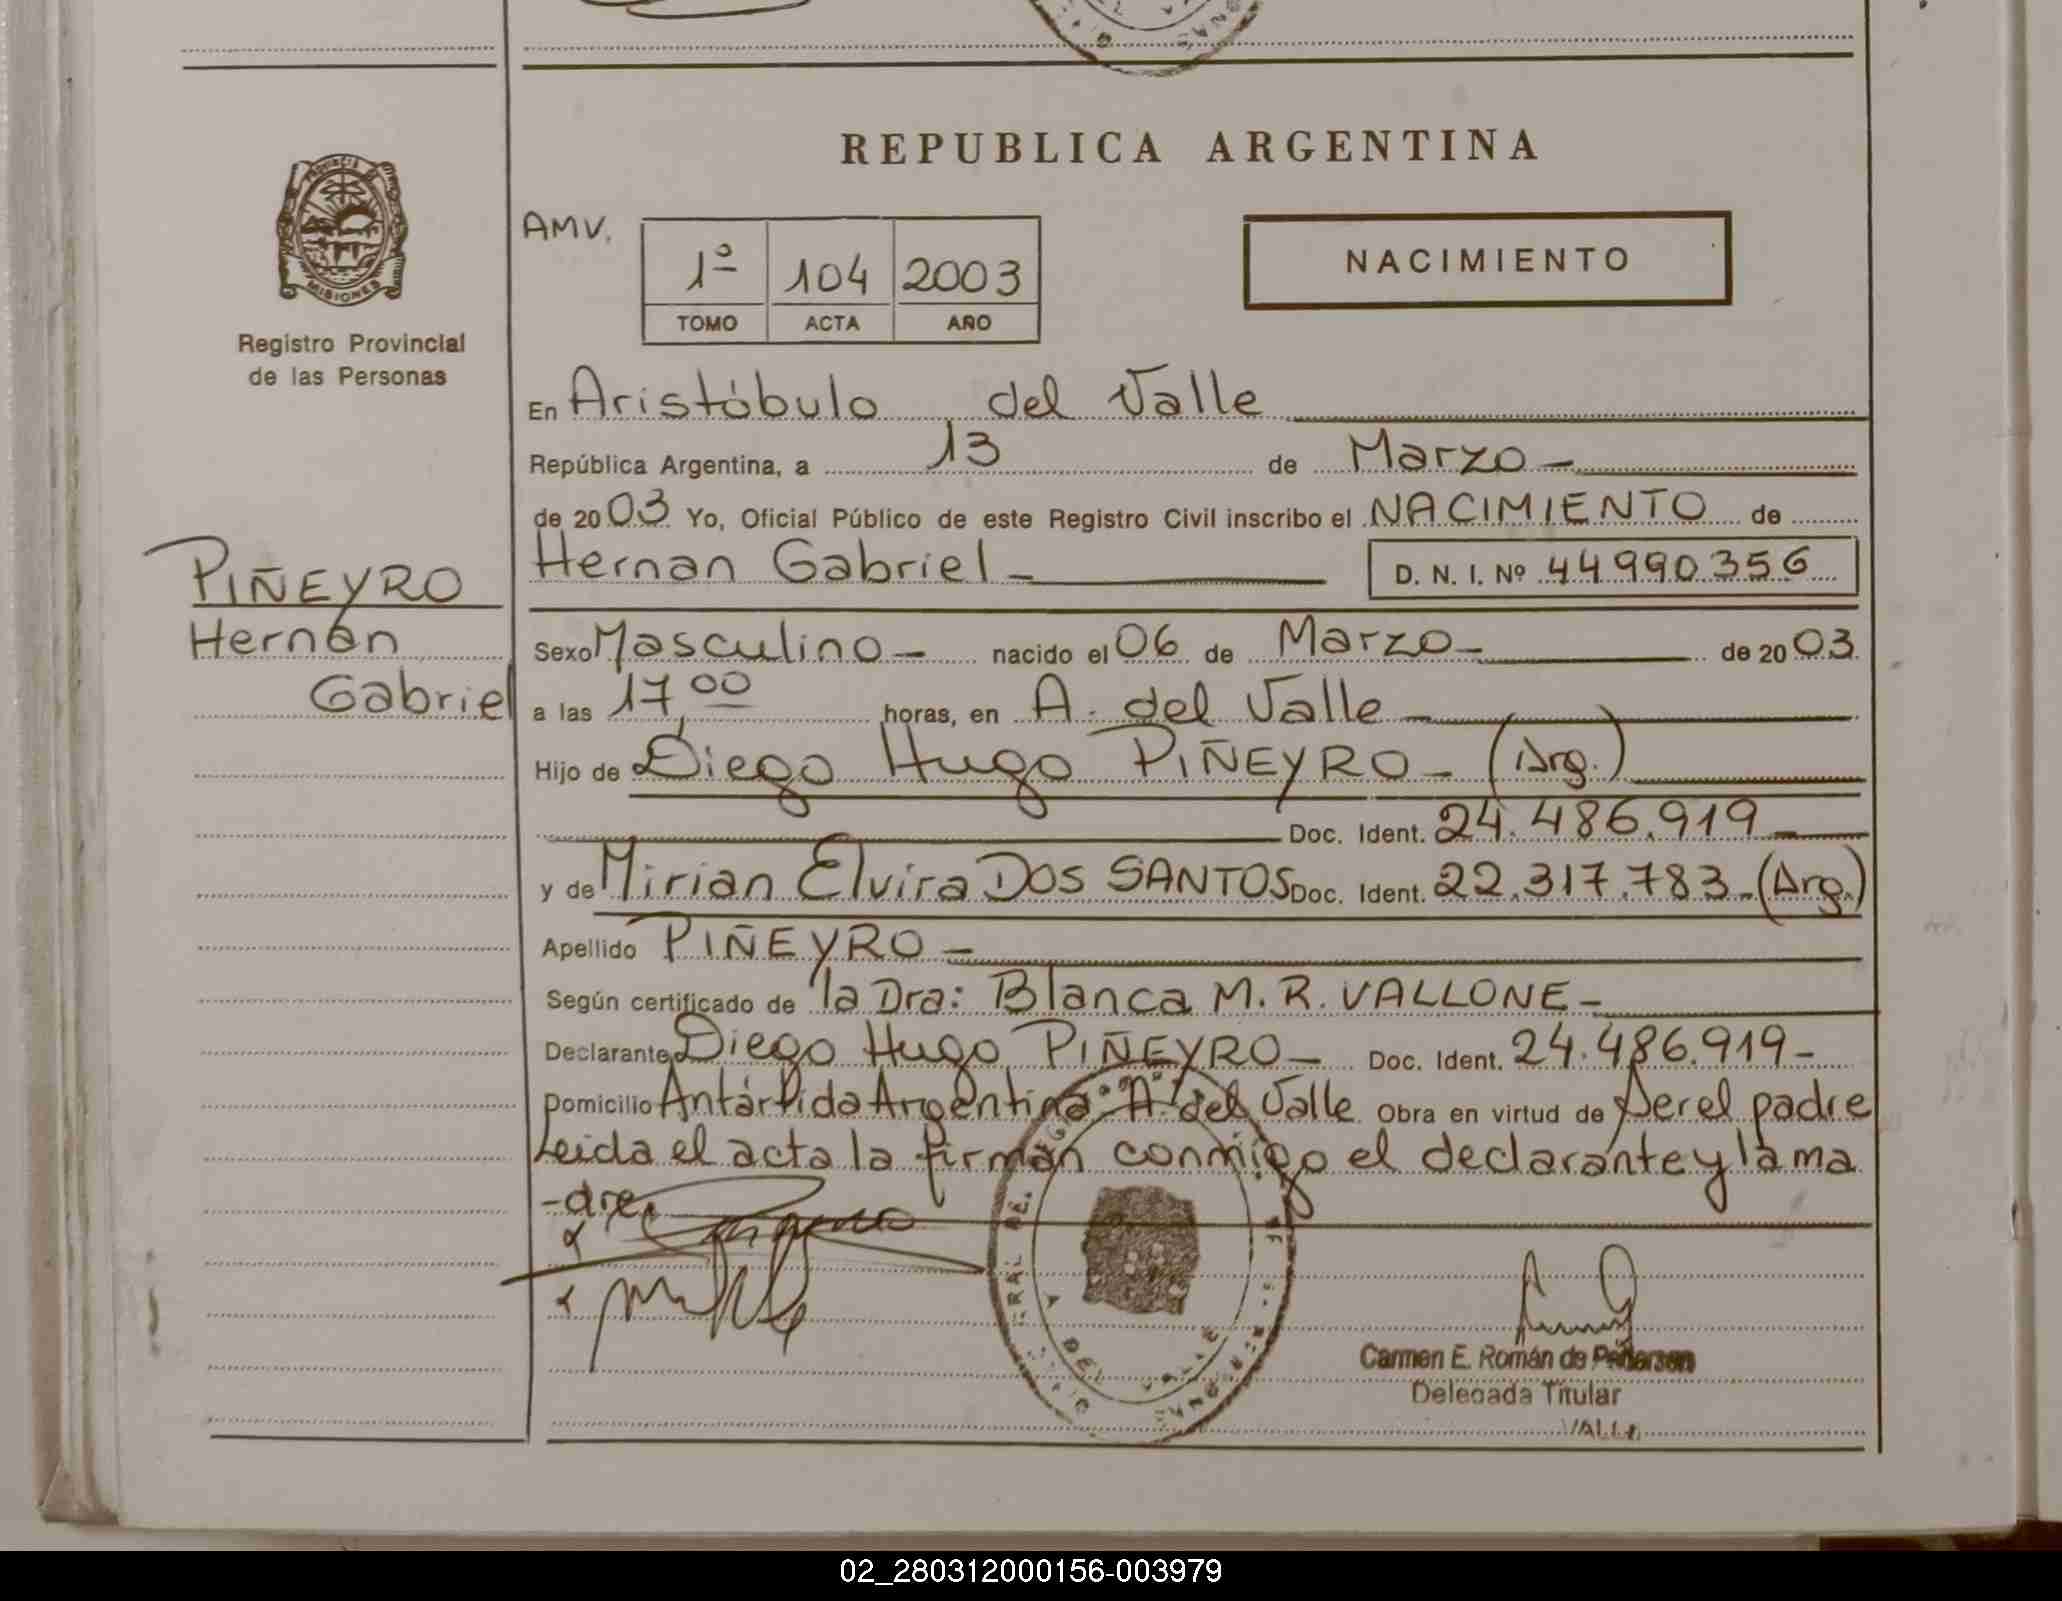 REPUBLICA ARGENTINA
PROVINCIA DE MISIONES
Registro Provincial
de las Personas
AMV.
1º 104 2003
TOMO ACTA AÑO
NACIMIENTO
En Aristóbulo del Valle
República Argentina, a 13 de Marzo
de 2003 Yo, Oficial Público de este Registro Civil inscribo el NACIMIENTO de
Hernan Gabriel D. N. I. Nº 44990356
PIÑEYRO
Hernán
Gabriel
Sexo Masculino nacido el 06 de Marzo de 2003
a las 17,00 horas, en A. del Valle
Hijo de Diego Hugo PIÑEYRO (Arg.)
Doc. Ident. 24.486.919
y de Mirian Elvira DOS SANTOS Doc. Ident. 22.317.783 (Arg.)
Apellido PIÑEYRO
Según certificado de la Dra: Blanca M. R. VALLONE
Declarante Diego Hugo PIÑEYRO Doc. Ident. 24.486.919
Domicilio Antártida Argentina. A. del Valle Obra en virtud de Ser el padre
Leida el acta la firman conmigo el declarante y la ma
-dre
Carmen E. Román de
Delegada Titular
VALLE
02_280312000156-003979